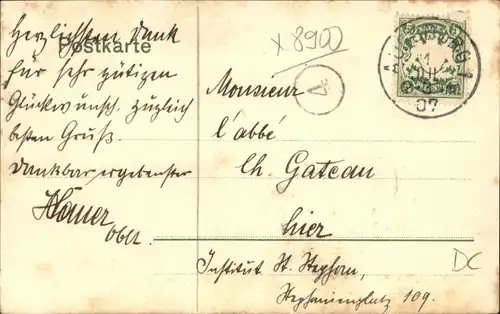 Postkarte
Herzlichsten Dank
für sehr gütigen
Glückwunsch. Zugleich
besten Gruß.
Dankbar ergebenster
Oblt.
x 8900
Monsieur
l'abbé
Ch. Gateau
hier
Institut St. Stephan,
Stephansplatz 109.
DC
AUGSBURG 1
07